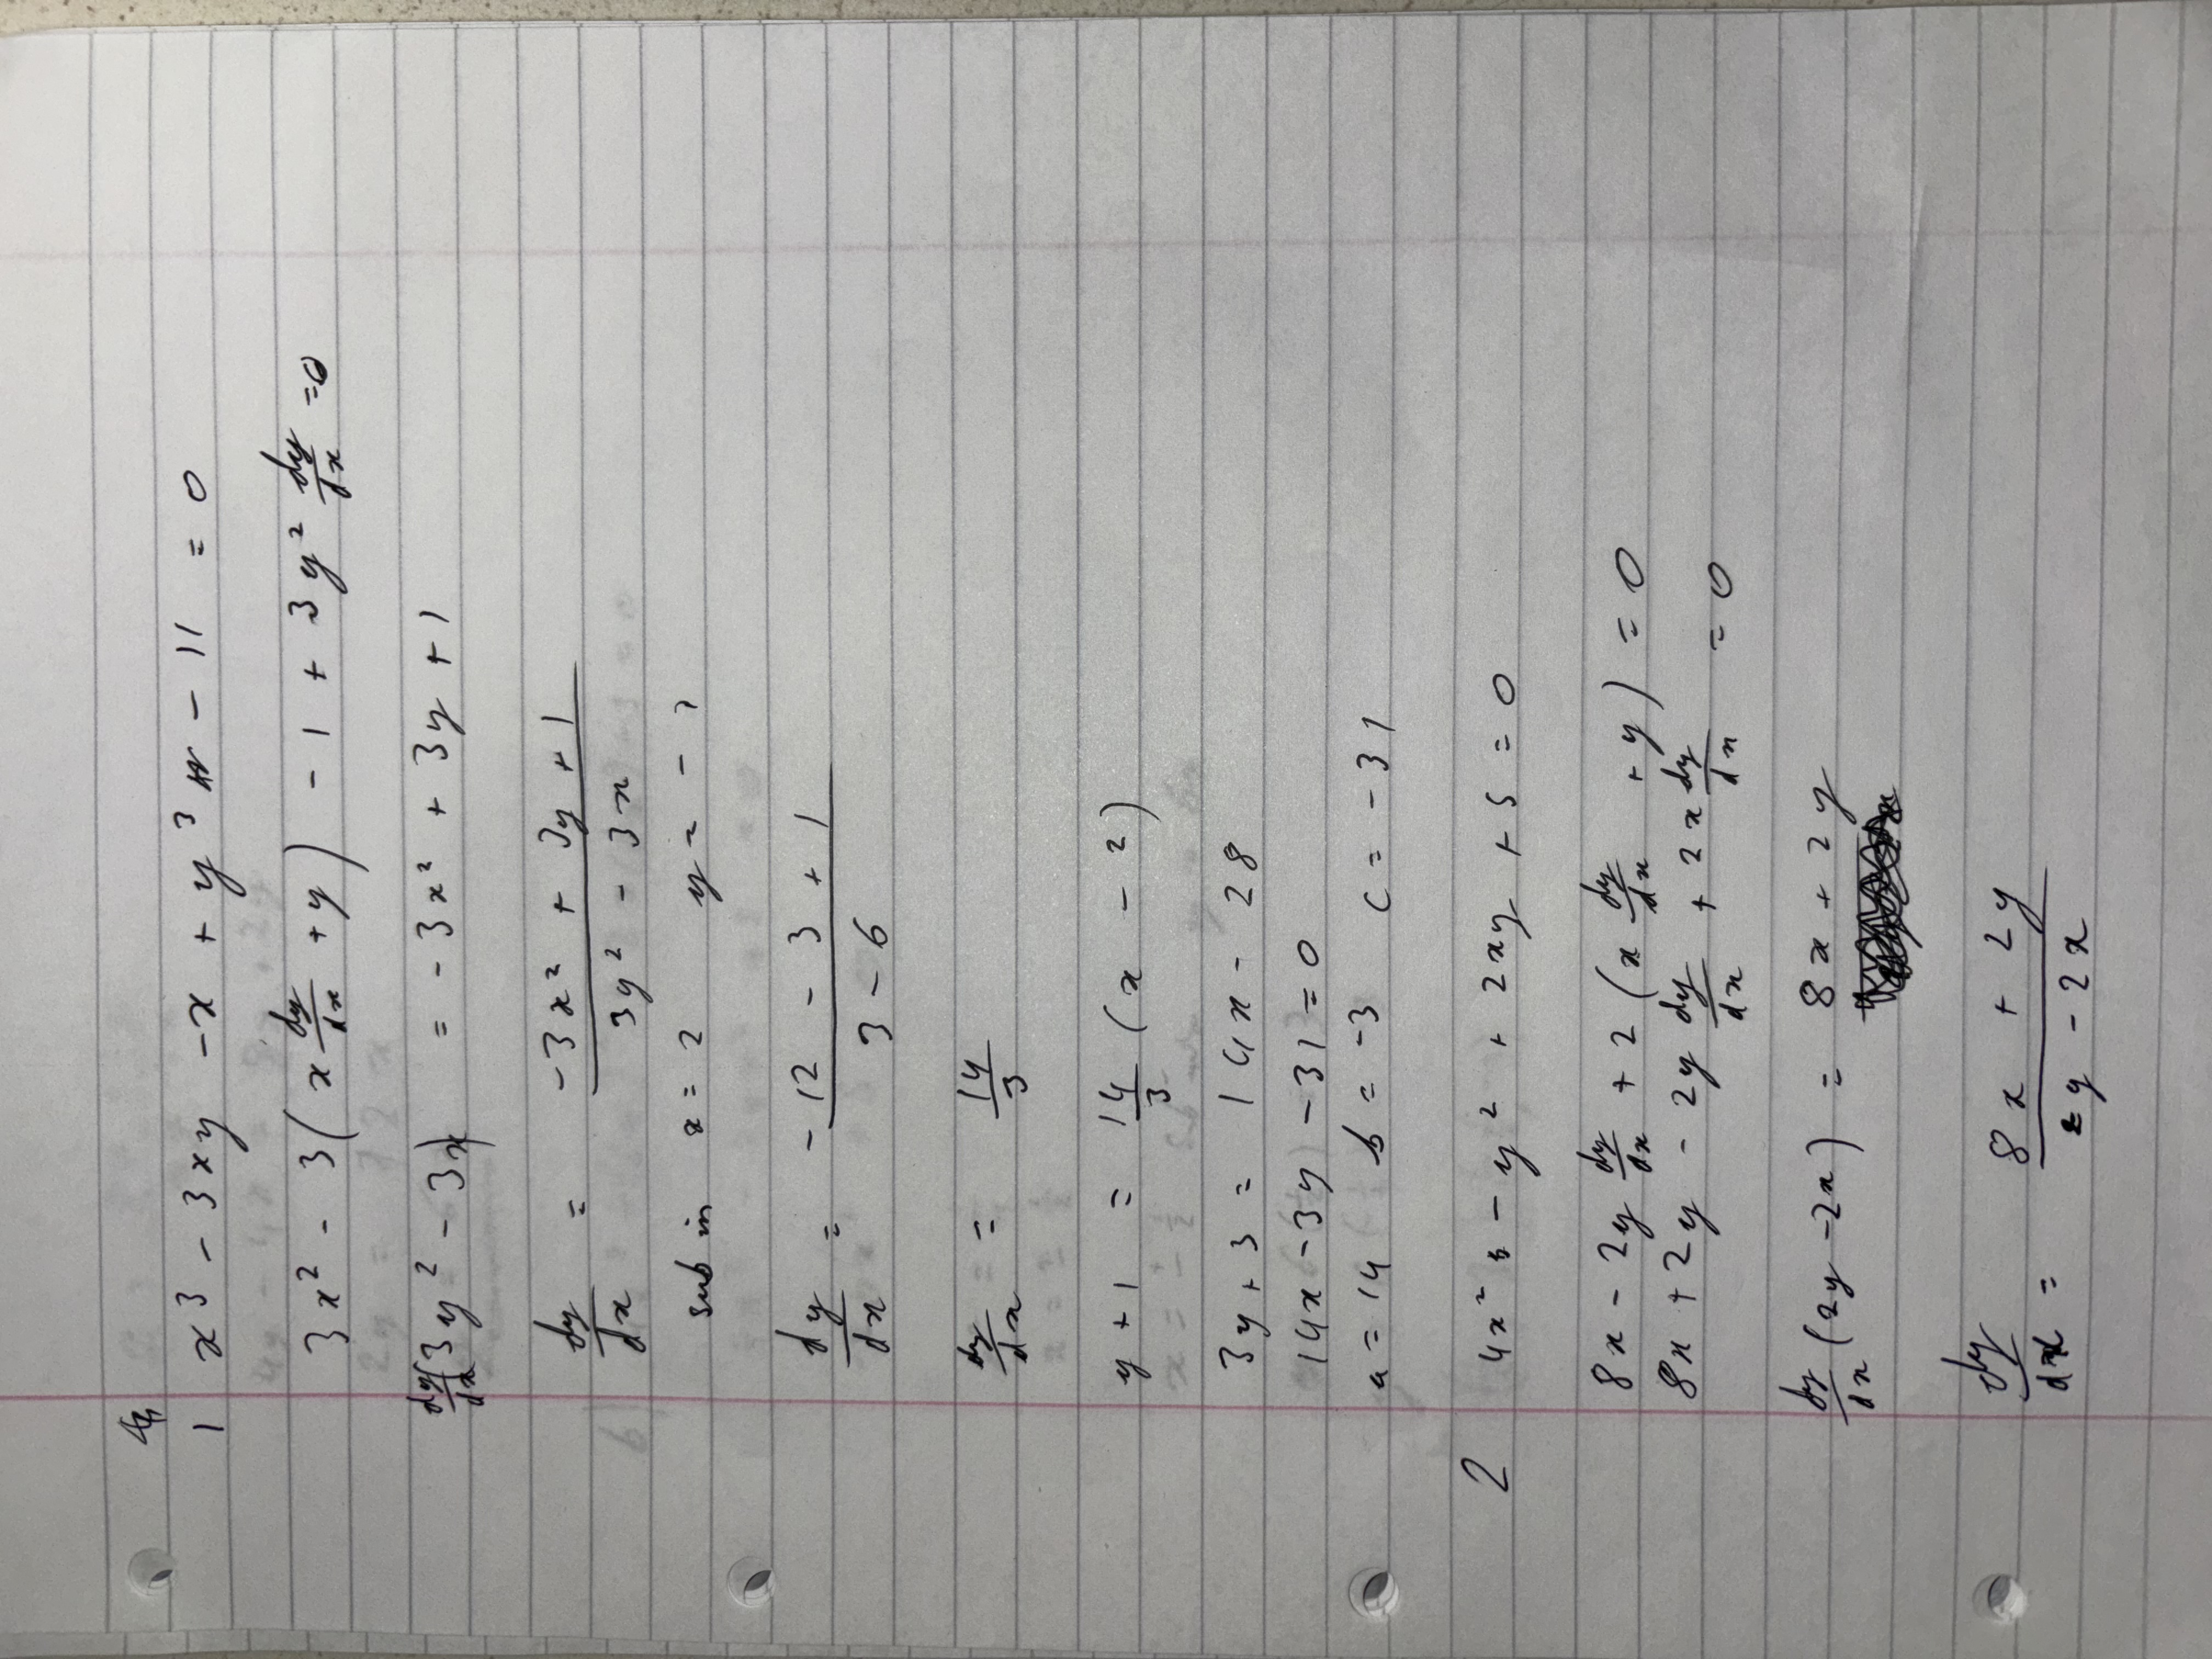 1 x³ - 3xy - x + y³ - 11 = 0
3x² - 3(x dy/dx + y) - 1 + 3y² dy/dx = 0
dy/dx(3y² - 3x) = -3x² + 3y + 1
dy/dx = (-3x² + 3y + 1)/(3y² - 3x)
sub in x = 2 y = -1
dy/dx = (-12 - 3 + 1)/(3 - 6)
dy/dx = 14/3
y + 1 = 14/3 (x - 2)
3y + 3 = 14x - 28
14x - 3y - 31 = 0
a = 14 b = -3 c = -31
2 4x² - y² + 2xy + 5 = 0
8x - 2y dy/dx + 2(x dy/dx + y) = 0
8x + 2y - 2y dy/dx + 2x dy/dx = 0
dy/dx (2y - 2x) = 8x + 2y
dy/dx = (8x + 2y)/(2y - 2x)